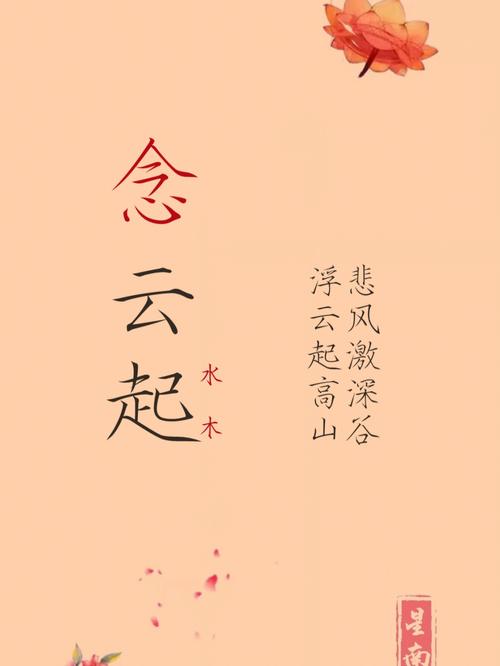 念云起
水木
悲风激深谷
浮云起高山
星南